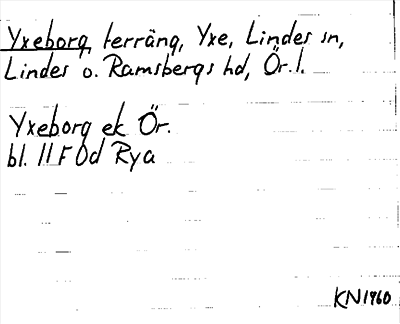 Yxeborg, terräng, Yxe, Lindes sn,
Lindes o. Ramsbergs hd, Ör. l.
Yxeborg ek Ör.
bl. 11F 0d Rya
KN1960